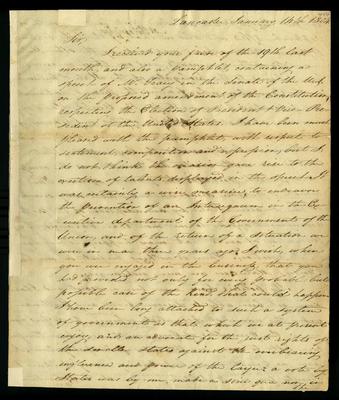 Lancaster January 14th 1804
Sir,
I received your favor of the 19th last
month, and also a Pamphlet, containing a
speech of Mr Tracy in the Senate of the U.S.
on the proposed amendment of the Constitution,
respecting the Election of President & Vice-Pre-
sident of the United States. I have been much
pleased with the pamphlet, with respect to
sentiment, composition and expression, but I
do not think the reason gave rise to the
exertion of talents displayed in the speech. It
was certainly a wise measure, to
the prevention of an Interregnum in the Ex-
ecutive department of the Governments of the
Union, and of the return of a situation we
were in near three years ago. I wish, when
you were engaged in the business, that you
had provided not only for probable but
possible case of the kind that could happen.
I have been long attached to such a system
of governments as that which we at present
enjoy and an advocate for the just rights of
the smaller states against the overbearing
influence and power of the larger: a vote by
States was by me, made a sine qua non, in